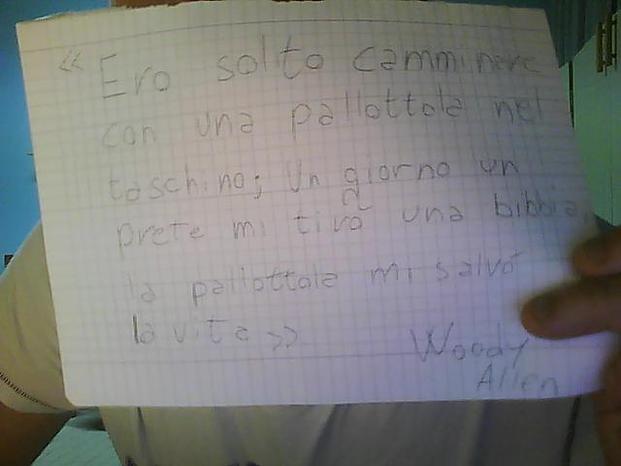 « Ero solito camminare
con una pallottola nel
taschino; un giorno un
prete mi tirò una bibbia,
la pallottola mi salvò
la vita »
Woody
Allen